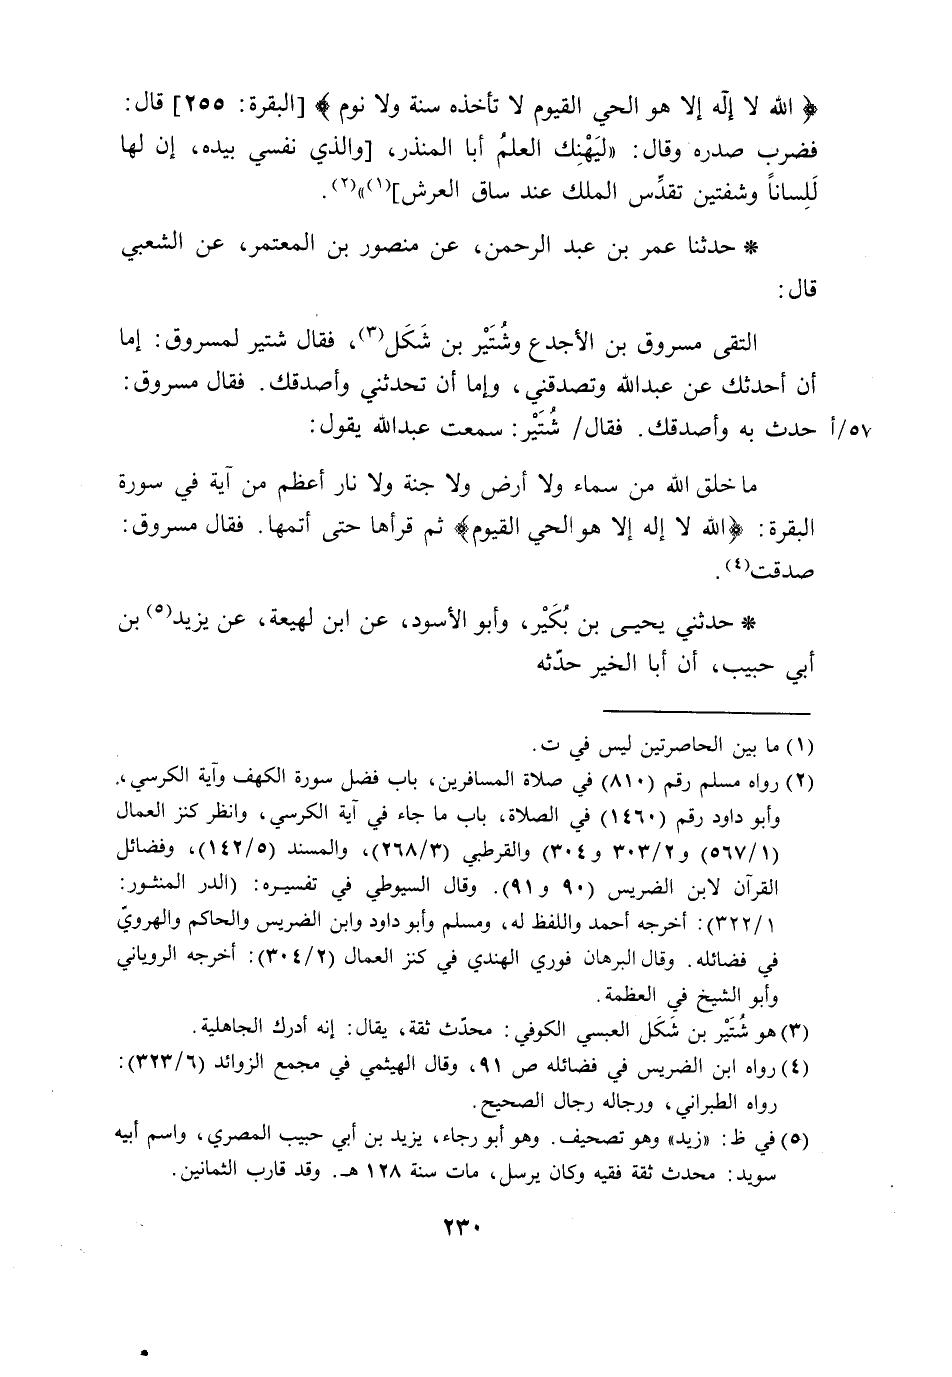 ﴿ الله لا إلٓه إلا هو الحي القيوم لا تأخذه سنة ولا نوم ﴾ [البقرة: ٢٥٥] قال:
فضرب صدره وقال: «ليَهْنِك العلمُ أبا المنذر، [والذي نفسي بيده، إن لها
لَلِساناً وشفتين تقدِّس الملك عند ساق العرش](١)»(٢).
* حدثنا عمر بن عبد الرحمن، عن منصور بن المعتمر، عن الشعبي
قال:
التقى مسروق بن الأجدع وشُتَيْر بن شَكَل(٣)، فقال شتير لمسروق: إما
أن أحدثك عن عبدالله وتصدقني، وإما أن تحدثني وأصدقك. فقال مسروق:
٥٧/أ حدث به وأصدقك. فقال/ شُتَيْر: سمعت عبدالله يقول:
ما خلق الله من سماء ولا أرض ولا جنة ولا نار أعظم من آية في سورة
البقرة: ﴿الله لا إله إلا هو الحي القيوم﴾ ثم قرأها حتى أتمها. فقال مسروق:
صدقت(٤).
* حدثني يحيى بن بُكَيْر، وأبو الأسود، عن ابن لهيعة، عن يزيد(٥) بن
أبي حبيب، أن أبا الخير حدّثه
(١) ما بين الحاصرتين ليس في ت.
(٢) رواه مسلم رقم (٨١٠) في صلاة المسافرين، باب فضل سورة الكهف وآية الكرسي،
وأبو داود رقم (١٤٦٠) في الصلاة، باب ما جاء في آية الكرسي، وانظر كنز العمال
(٥٦٧/١) و٣٠٣/٢ و٣٠٤) والقرطبي (٢٦٨/٣)، والمسند (١٤٢/٥)، وفضائل
القرآن لابن الضريس (٩٠ و٩١). وقال السيوطي في تفسيره: (الدر المنثور:
٣٢٢/١): أخرجه أحمد واللفظ له، ومسلم وأبو داود وابن الضريس والحاكم والهرويّ
في فضائله. وقال البرهان فوري الهندي في كنز العمال (٣٠٤/٢): أخرجه الروياني
وأبو الشيخ في العظمة.
(٣) هو شُتَيْر بن شَكَل العبسي الكوفي: محدّث ثقة، يقال: إنه أدرك الجاهلية.
(٤) رواه ابن الضريس في فضائله ص ٩١، وقال الهيثمي في مجمع الزوائد (٣٢٣/٦):
رواه الطبراني، ورجاله رجال الصحيح.
(٥) في ظ: «زيد» وهو تصحيف. وهو أبو رجاء، يزيد بن أبي حبيب المصري، واسم أبيه
سويد: محدث ثقة فقيه وكان يرسل، مات سنة ١٢٨ هـ. وقد قارب الثمانين.
٢٣٠